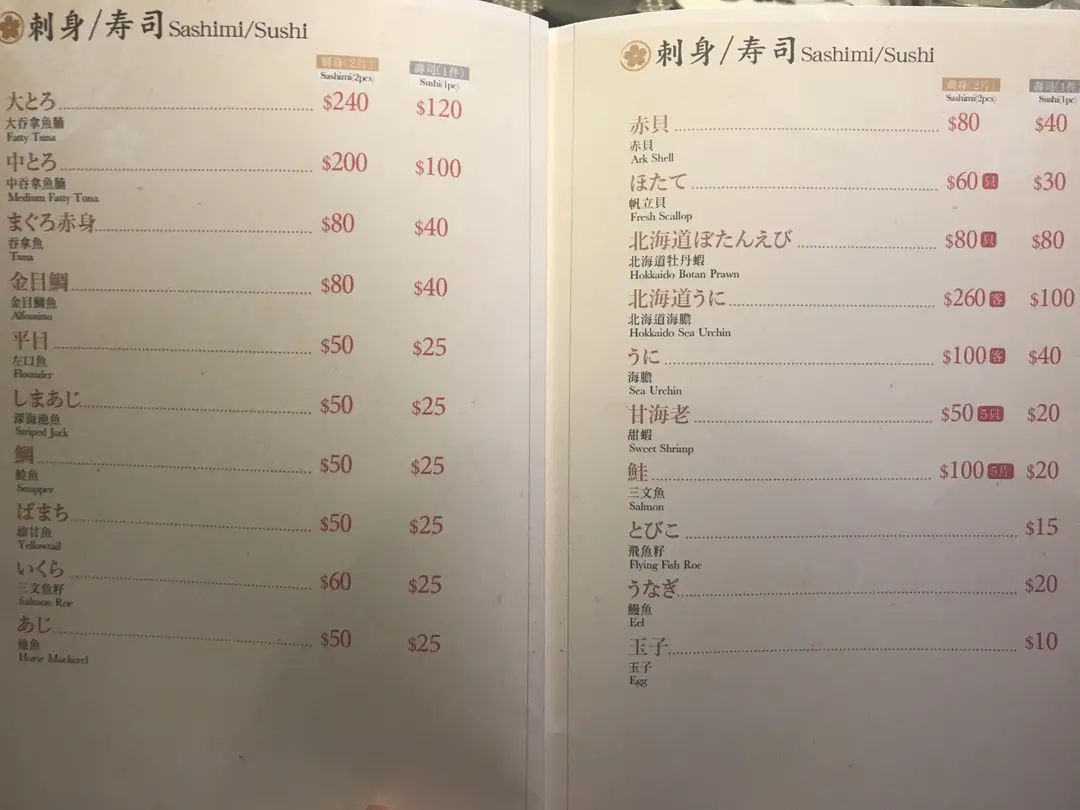 刺身/寿司Sashimi/Sushi
刺身(2片) 壽司(1件)
Sashimi(2pcs) Sushi(1pc)
大とろ $240 $120
大吞拿魚腩
Fatty Tuna
中とろ $200 $100
中吞拿魚腩
Medium Fatty Tuna
まぐろ赤身 $80 $40
吞拿魚
Tuna
金目鯛 $80 $40
金目鯛魚
Alfonsino
平目 $50 $25
左口魚
Flounder
しまあじ $50 $25
深海池魚
Striped Jack
鯛 $50 $25
鯰魚
Snapper
ばまち $50 $25
油甘魚
Yellowtail
いくら $60 $25
三文魚籽
Salmon Roe
あじ $50 $25
池魚
Horse Mackerel
刺身/寿司Sashimi/Sushi
刺身(2片) 壽司(1件
Sashimi(2pcs) Sushi(1pc)
赤貝 $80 $40
赤貝
Ark Shell
ほたて $60 只 $30
帆立貝
Fresh Scallop
北海道ぼたんえび $80 只 $80
北海道牡丹蝦
Hokkaido Botan Prawn
北海道うに $260 客 $100
北海道海膽
Hokkaido Sea Urchin
うに $100 客 $40
海膽
Sea Urchin
甘海老 $50 5只 $20
甜蝦
Sweet Shrimp
鮭 $100 5片 $20
三文魚
Salmon
とびこ $15
飛魚籽
Flying Fish Roe
うなぎ $20
鰻魚
Eel
玉子 $10
玉子
Egg